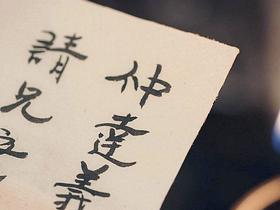 仲達義
請兄